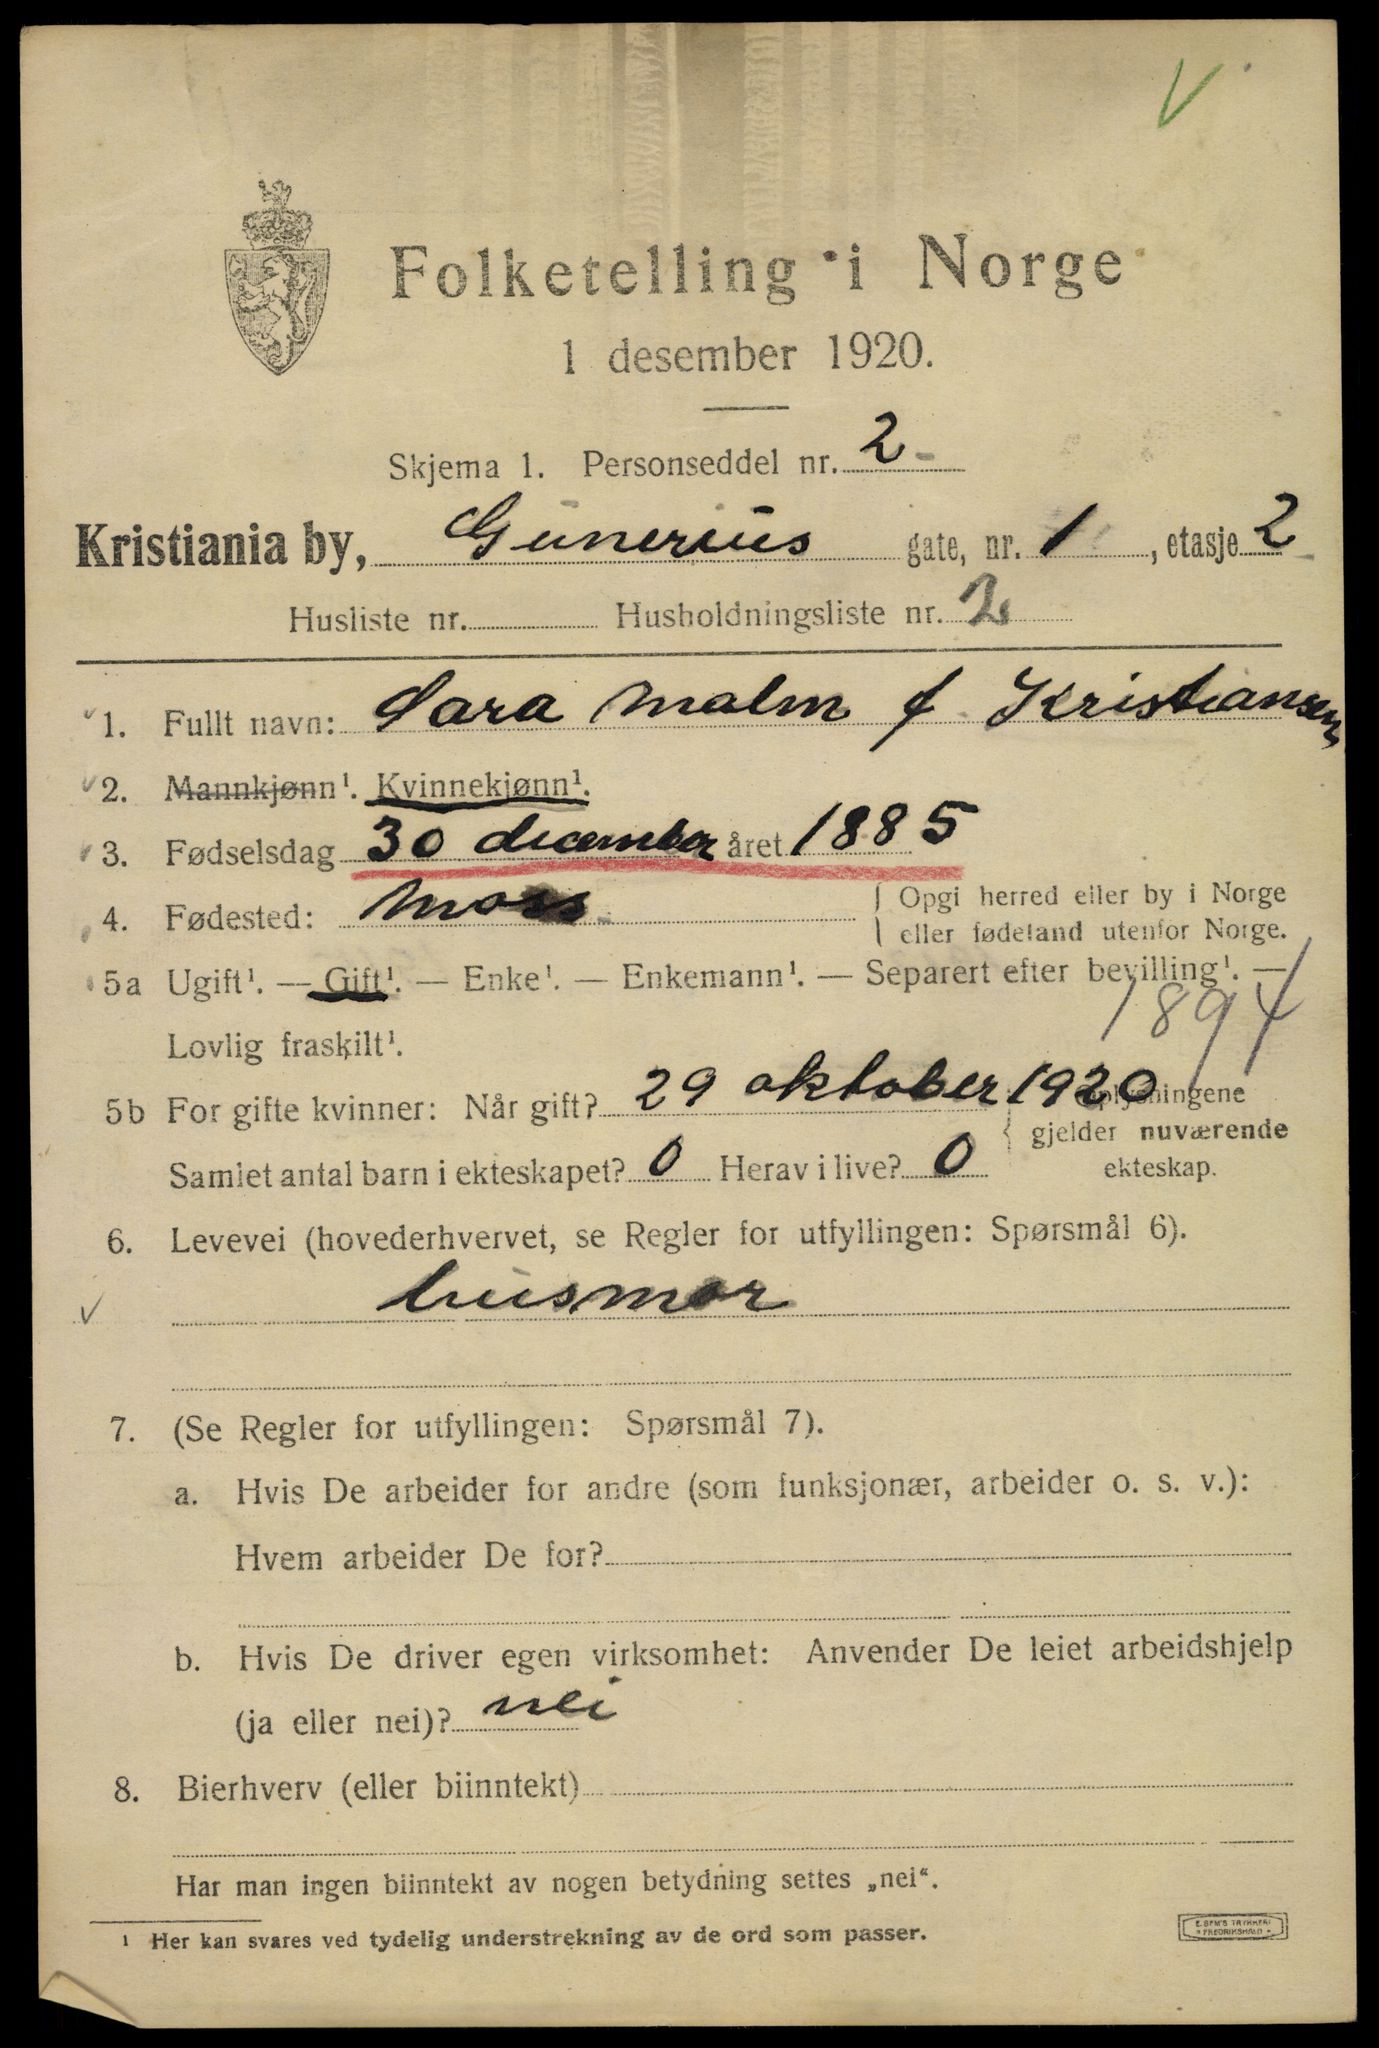 V
Folketelling i Norge
1 desember 1920.
Skjema 1. Personseddel nr. 2
Kristiania by, Gunerius gate, nr. 1, etasje 2
Husliste nr. Husholdningsliste nr. 2
1. Fullt navn: Sara Malm f Kristiansen
2. Mannkjønn¹. Kvinnekjønn¹.
3. Fødselsdag 30 december året 1885
4. Fødested: Moss { Opgi herred eller by i Norge
eller fødeland utenfor Norge.
5a Ugift¹. — Gift¹. — Enke¹. — Enkemann¹. — Separert efter bevilling¹. —
Lovlig fraskilt¹. 1894
5b For gifte kvinner: Når gift? 29 oktober 1920 { Oplysningene
gjelder nuværende
Samlet antal barn i ekteskapet? 0 Herav i live? 0 ekteskap.
6. Levevei (hovederhvervet, se Regler for utfyllingen: Spørsmål 6).
husmor
7. (Se Regler for utfyllingen: Spørsmål 7).
a. Hvis De arbeider for andre (som funksjonær, arbeider o. s. v.):
Hvem arbeider De for?
b. Hvis De driver egen virksomhet: Anvender De leiet arbeidshjelp
(ja eller nei)? nei
8. Bierhverv (eller biinntekt)
Har man ingen biinntekt av nogen betydning settes „nei“.
¹ Her kan svares ved tydelig understrekning av de ord som passer.
E. SEM'S TRYKKERI
FREDRIKSHALD